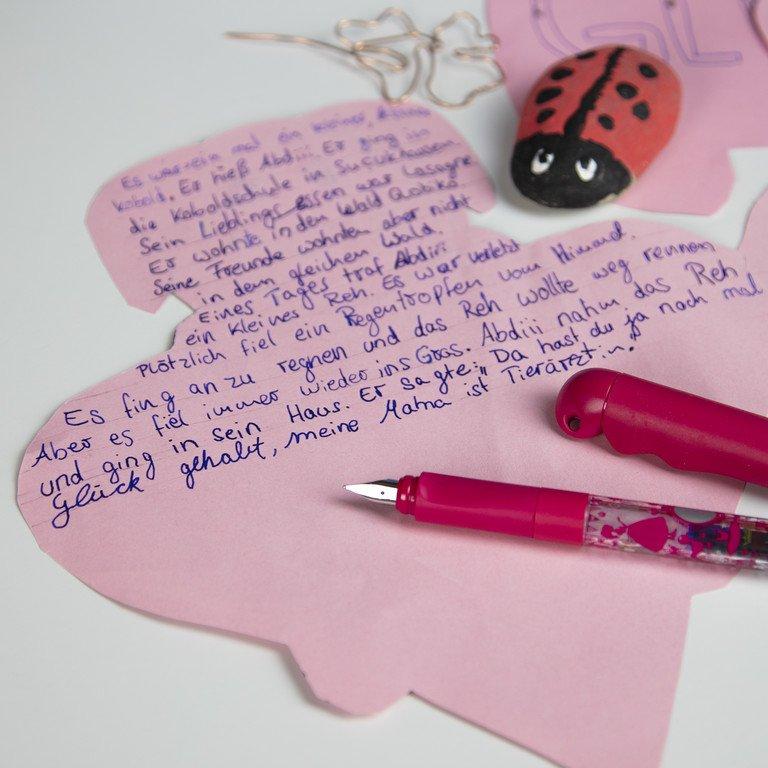 GL
Es war ein mal ein kleiner,
kobold. Er hieß Abdiii. Er ging in
die Koboldschule in
Sein Lieblingsessen war Lasagne.
Er wohnte in dem Wald
Seine Freunde wohnten aber nicht
in dem gleichen Wald.
Eines Tages traf Abdiii
ein kleines Reh. Es war verletzt
Plötzlich fiel ein Regentropfen vom Himmel.
Es fing an zu regnen und das Reh wollte weg rennen
Aber es fiel immer wieder ins Gras. Abdiii nahm das Reh
und ging in sein Haus. Er sagte: „Da hast du ja noch mal
Glück gehabt, meine Mama ist Tierärzt.in."